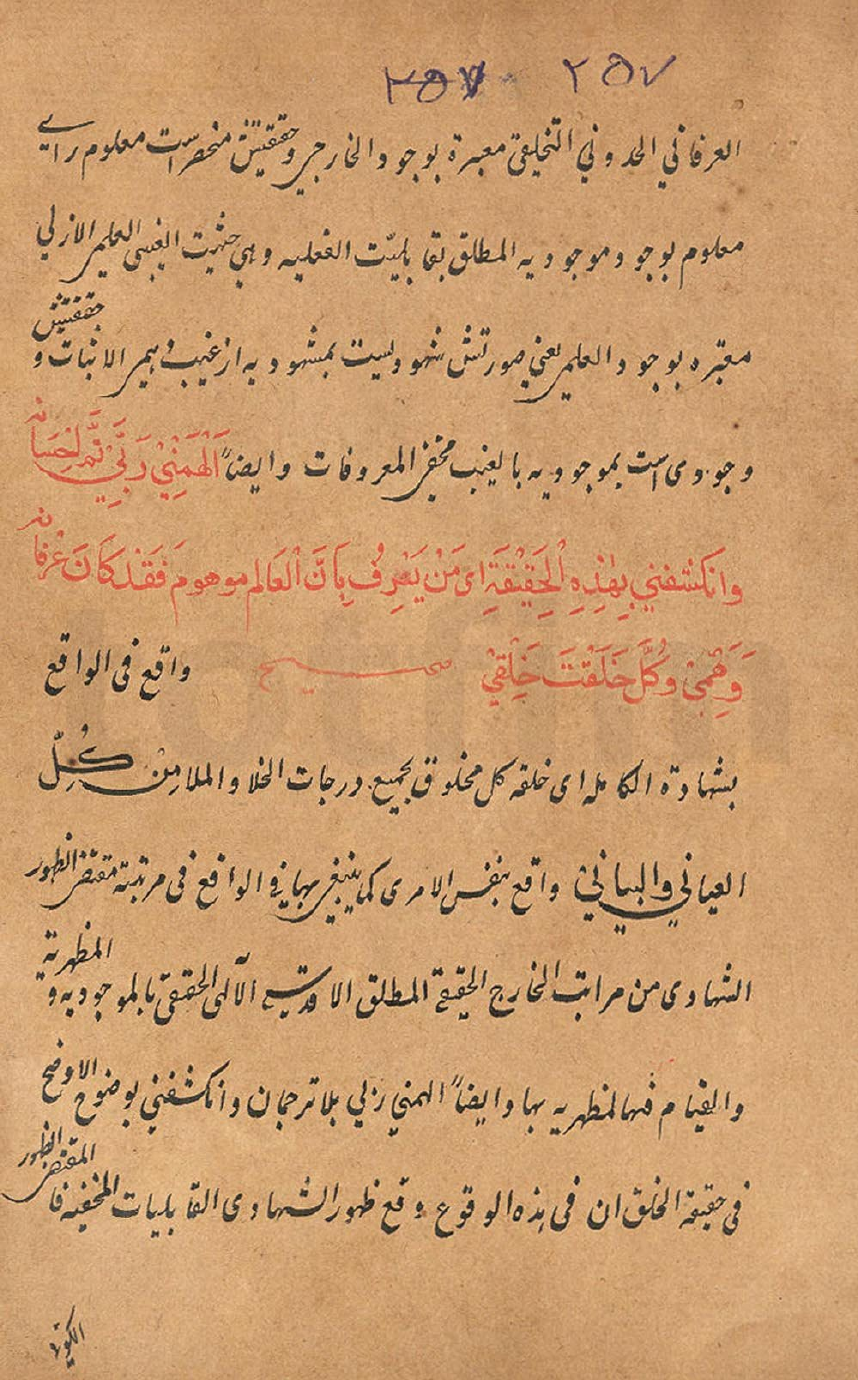 ٢٥٧ ٢٥٧
العرفاني الحدوثي التخليقي معبرة بوجود الخارجي وحقيقتش منحصر است معلوم براي
معلوم بوجود موجوديه المطلق بقابليّت الفعليه وهي حيثيت الغيبى العلمى الازلي
معتبره بوجود العلمى يعني صورتش شهوديست بمشهوديه از غيب وهمى الاثبات و حقيقتش
وجودى است بموجوديه بالغيب مخفى المعروفات وايضاً اَلْهَمَنِيْ رَبِّيْ تَمَّ لِحَسَانه
وَانكشفني بِهٰذِهِ الْحَقِيْقَةِ اى مَنْ يَعْرِفُ بِاَنَّ الْعَالم موهومَ فَقَدْ كَانَ عْرفانه
وَهْمِىْ وَكُلَّ خَلَقْتَ خَلِقِيْ صحيح واقع فى الواقع
بشهادة الكامله اى خلقه كل مخلوق بجميع درجات الخلا والملا مِنْ كُلِّ
العياني والبياني واقع بنفس الامرى كما ينبغى بها في الواقع فى مرتبته مقتضى الظهور
الشهادى من مراتب الخارج الحقيقي المطلق الا الآلهى الحقيقى بالموجوديه و المظهرية
والقيام فيها لمظهريه بها وايضاً الهمني ربي بلا ترجمان وانكشفني بوضوح الاوضح
فى حقيقة الخلق ان فى هذه الوقوع وقع ظهور الشهادى القابليات المخفيه فا المقتضى الظهور